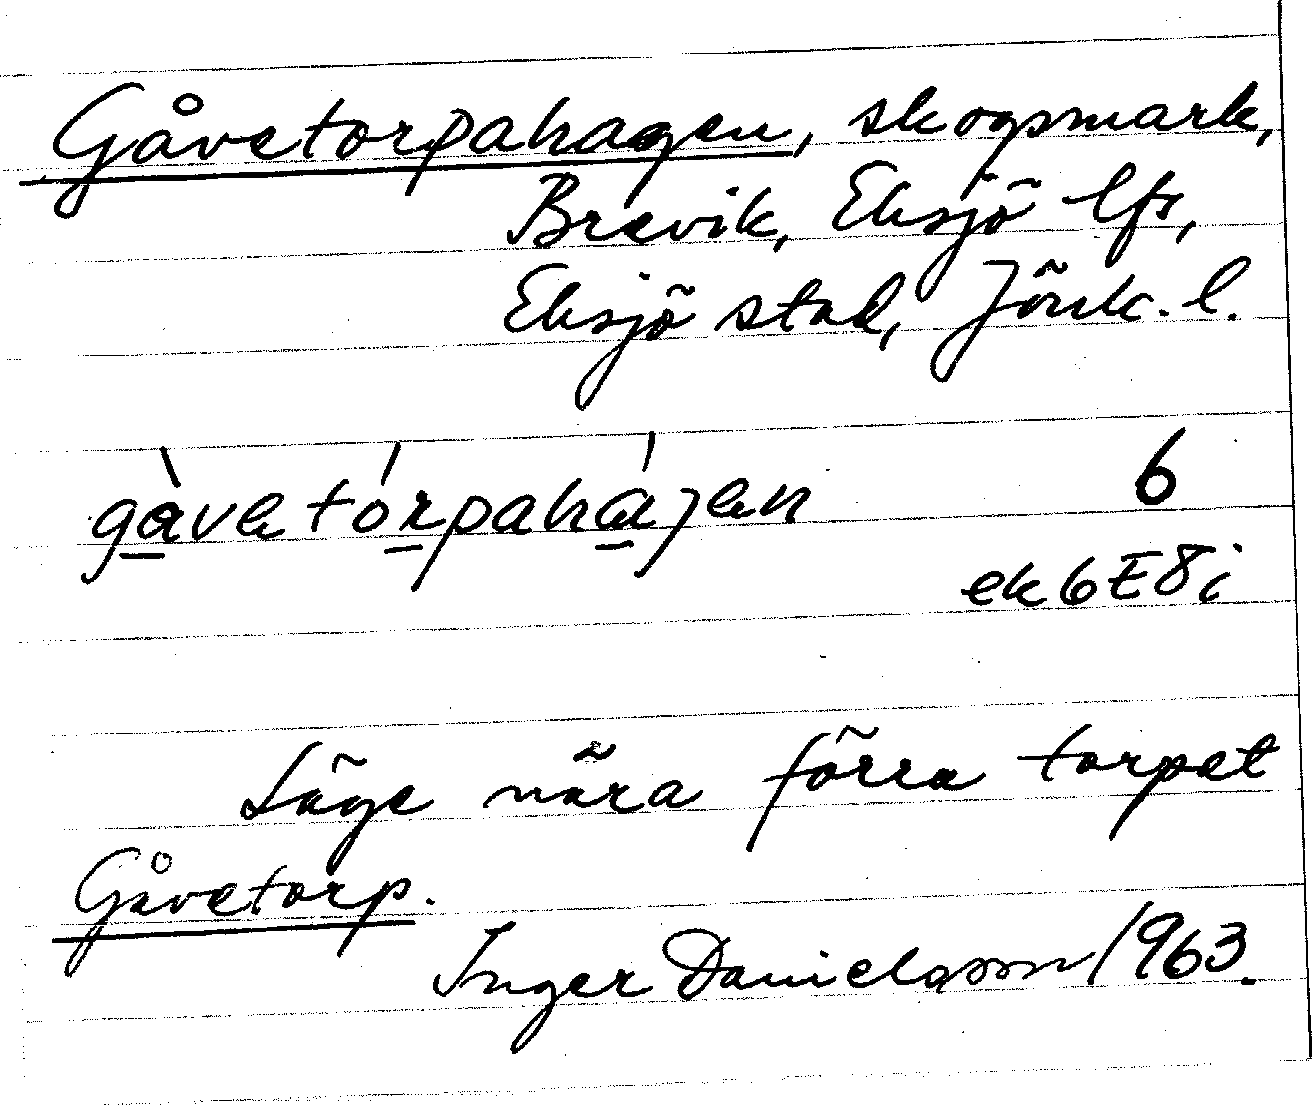 Gåvetorpahagen, skogsmark,
Brevik, Eksjö lfs,
Eksjö stad, Jönk. l.
gàvetórpahájen 6
ek 6 E 8 i
Läge nära förra torpet
Gåvetorp.
Inger Danielsson 1963.